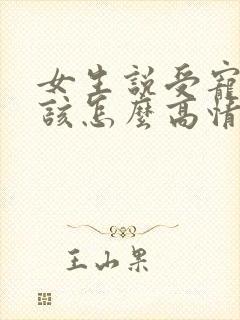 女生説受寵
該怎麼高情
王山果